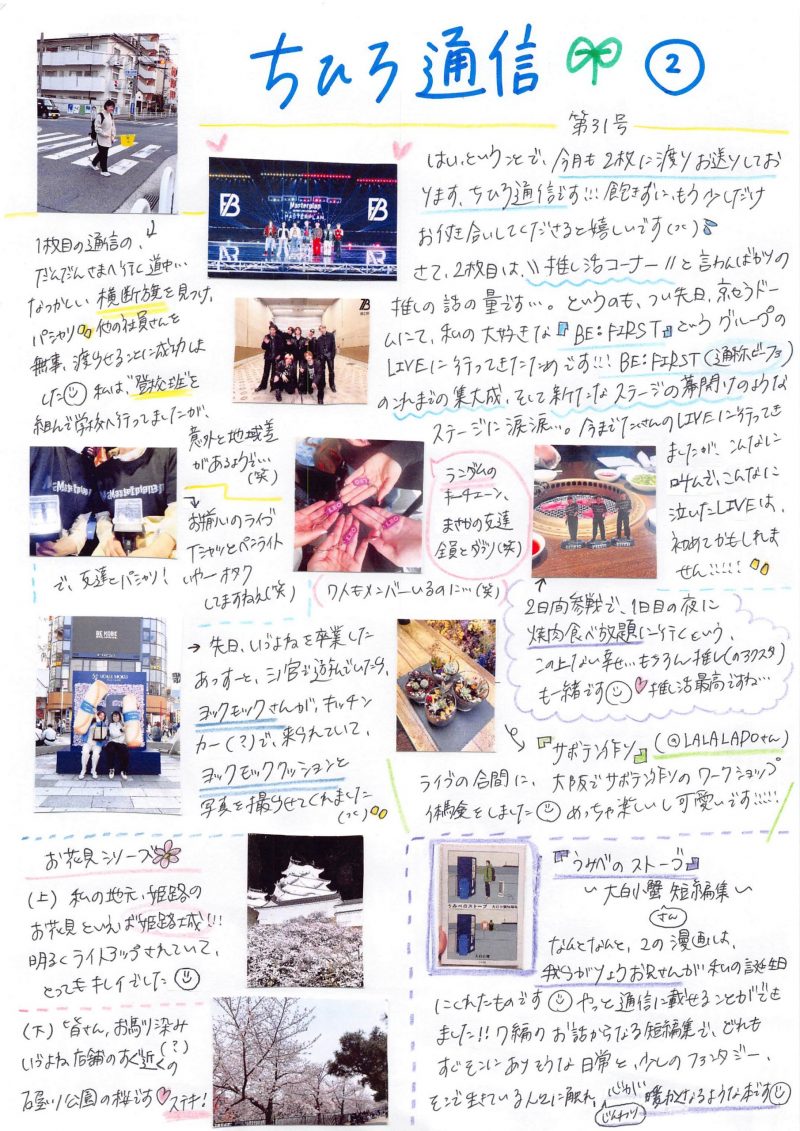 ちひろ通信 ②
第31号
はい、ということで、今月も2枚に渡りお送りして
おります、ちひろ通信です!!! 飽きずに、もう少しだけ
お付き合いしてくださると嬉しいです
さて、2枚目は、\\推し活コーナー//と言わんばかりの
推しの話の量です…。というのも、つい先日、京セラドー
ムにて、私の大好きな『BE:FIRST』というグループの
LIVEに行ってきたためです!!! BE:FIRST(通称ビーファ)
のこれまでの集大成、そして新たなステージの幕開けのような
ステージに涙涙…。今までたくさんのLIVEに行ってき
ましたが、こんなに
叫んで、こんなに
泣いたLIVEは、
初めてかもしれま
せん!!!!!
1枚目の通信の、
だんだんさまへ行く道中…
なつかしい横断旗を見つけ、
パシャリ 他の社員さんを
無事、渡らせることに成功しま
した 私は"登校班"を
組んで学校へ行ってましたが、
意外と地域差
があるようで…
(笑)
Masterplan
MASTERPLAN
お揃いのライブ
Tシャツとペンライト
いやーオタク
してますねえ(笑)
で、友達とパシャリ!
ランダムの
キーチェーン、
まさかの友達
全員とダブリ(笑)
7人もメンバーいるのに…(笑)
2日間参戦で、1日目の夜に
焼肉食べ放題に行くという、
この上ない幸せ…もちろん推し(のアクスタ)
も一緒です♡推し活最高ですね…
→先日、いづよねを卒業した
あっすーと、三宮で遊んでいたら、
ヨックモックさんが、キッチン
カー(?)で、来られていて、
ヨックモッククッションと
写真を撮らせてくれました
BE MORE
YOKU MOKU
『サボテン作り』(@LALALADOさん)
ライブの合間に、大阪でサボテン作りのワークショップ
体験をしました めっちゃ楽しいし可愛いです!!!!!
お花見シリーズ
(上) 私の地元、姫路の
お花見といえば"姫路城"!!!
明るくライトアップされていて、
とってもキレイでした
(下) 皆さん、お馴染み
いづよね店舗のすぐ近く(?)の
石屋川公園の桜です♡ステキ!
『うみべのストーブ』
〜大白小蟹 短編集〜
さん
うみべのストーブ 大白小蟹短編集
なんとなんと、この漫画は、
我らがりょうお兄さんが私の誕生日
にくれたものです やっと通信に載せることができ
ました!! 7編のお話からなる短編集で、どれも
すぐそこにありそうな日常と、少しのファンタジー、
そこで生きている人々に触れ、心がじんわり暖かくなるような本です